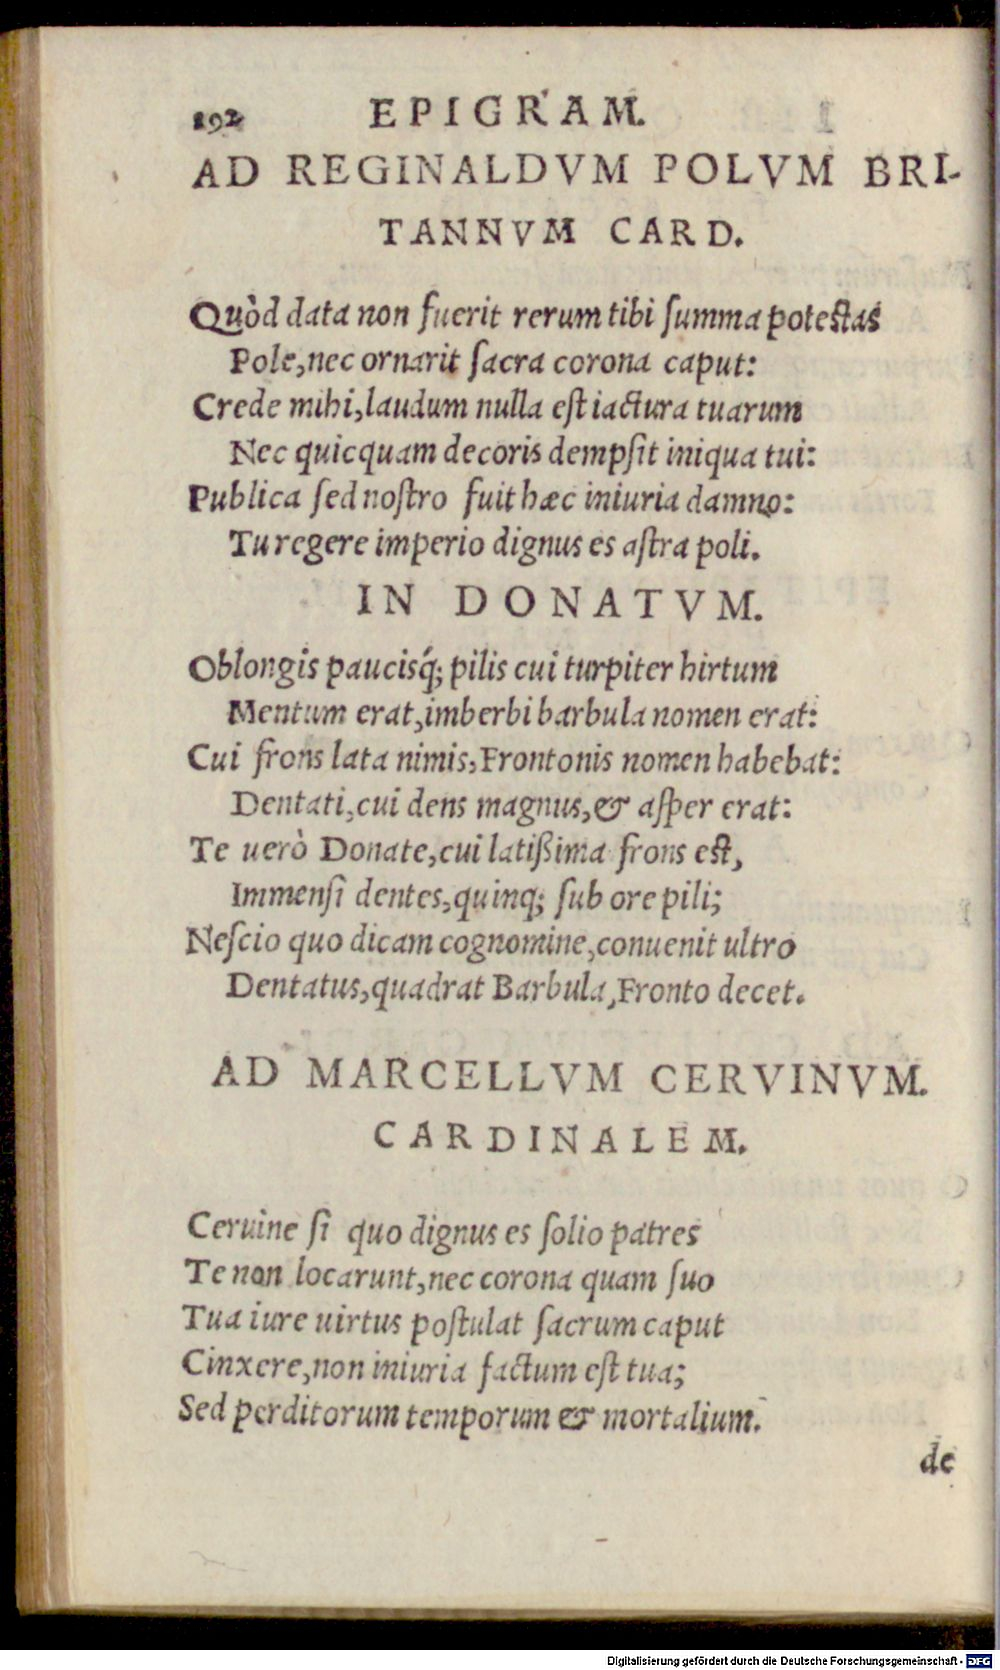 192 EPIGRAM.
AD REGINALDVM POLVM BRI-
TANNVM CARD.
Quòd data non fuerit rerum tibi ſumma poteſtas
Pole, nec ornarit ſacra corona caput:
Crede mihi, laudum nulla eſt iactura tuarum
Nec quicquam decoris dempſit iniqua tui:
Publica ſed noſtro fuit hæc iniuria damno:
Tu regere imperio dignus es aſtra poli.
IN DONATVM.
Oblongis paucisq́; pilis cui turpiter hirtum
Mentum erat, imberbi barbula nomen erat:
Cui frons lata nimis, Frontonis nomen habebat:
Dentati, cui dens magnus, & aſper erat:
Te uerò Donate, cui latißima frons eſt,
Immenſi dentes, quinq; ſub ore pili;
Neſcio quo dicam cognomine, conuenit ultro
Dentatus, quadrat Barbula, Fronto decet.
AD MARCELLVM CERVINVM.
CARDINALEM.
Ceruine ſi quo dignus es ſolio patres
Te non locarunt, nec corona quam ſuo
Tua iure uirtus poſtulat ſacrum caput
Cinxere, non iniuria factum eſt tua;
Sed perditorum temporum & mortalium.
de
Digitalisierung gefördert durch die Deutsche Forschungsgemeinschaft - DFG